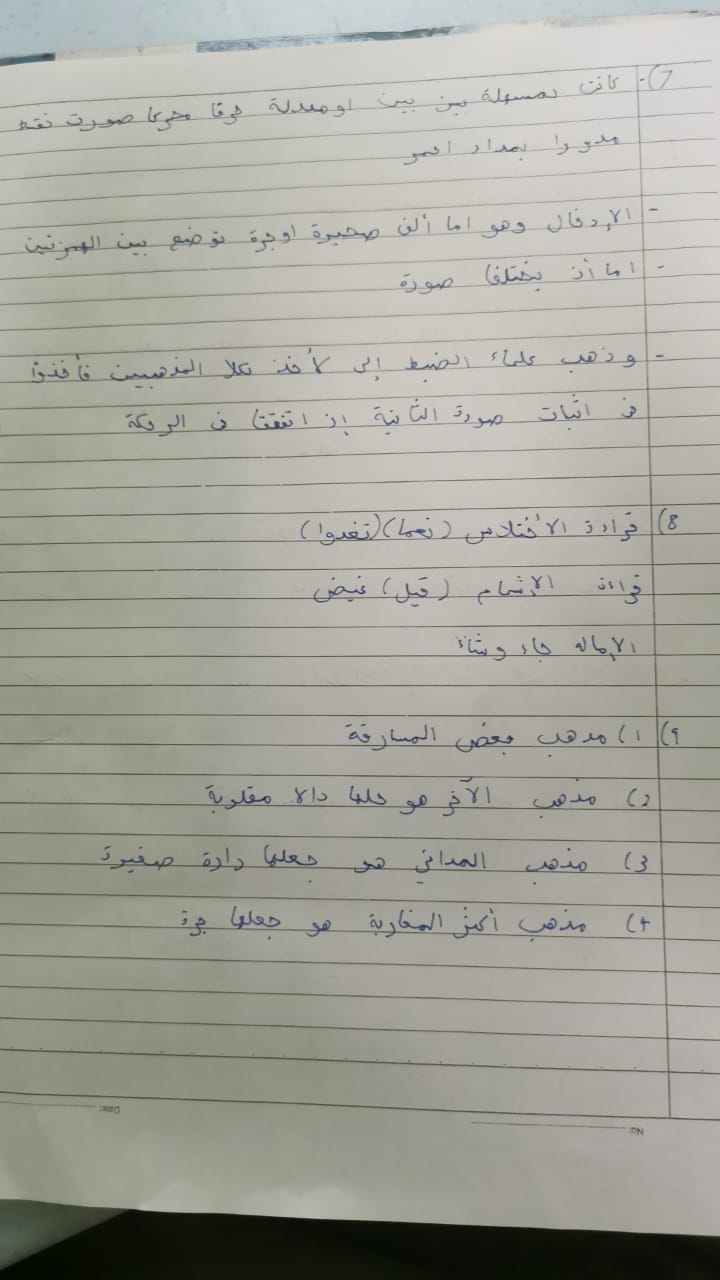 7)- كانت مسهلة بين بين او مبدلة حرفا محركا صورت نقط
مدورا بمداد احمر
- الإدخال وهو اما ألف صحيرة او جرة توضع بين الهمزتين
- اما أن يختلفا صورة
- وذهب علماء الضبط إلى لأخذ بكلا المذهبين فأخذوا
في اثبات صورة الثانية إذ اتفقتا في الحركة
8) قراءة الأختلاس (نعما) (تعدوا)
قراءة الإشمام (قيل) غيض
الإماله جاء وشاء
9) 1) مذهب بعض المسارقة
2) مذهب الآخر هو جعلها دالا مقلوبة
3) مذهب الداني هو جعلها دارة صغيرة
4) مذهب أكثر المغاربة هو جعلها جرة
Date:
No: